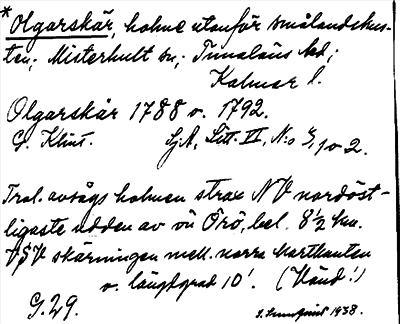 *Olgarskär, holme utanför smålandskus-
ten; Misterhult sn; Tunaläns hd;
Kalmar l.
Olgarskär 1788 o. 1792.
G. Klint. SjA, Litt. VI, N:o 1 o 2.
Trol. avsågs holmen strax NV nordöst-
ligaste udden av ön Örö, bel. 8 1/2 km.
VSV skärningen mell. norra kartkanten
o. längdgrad 10'. (Vänd!)
G.29. 1938.